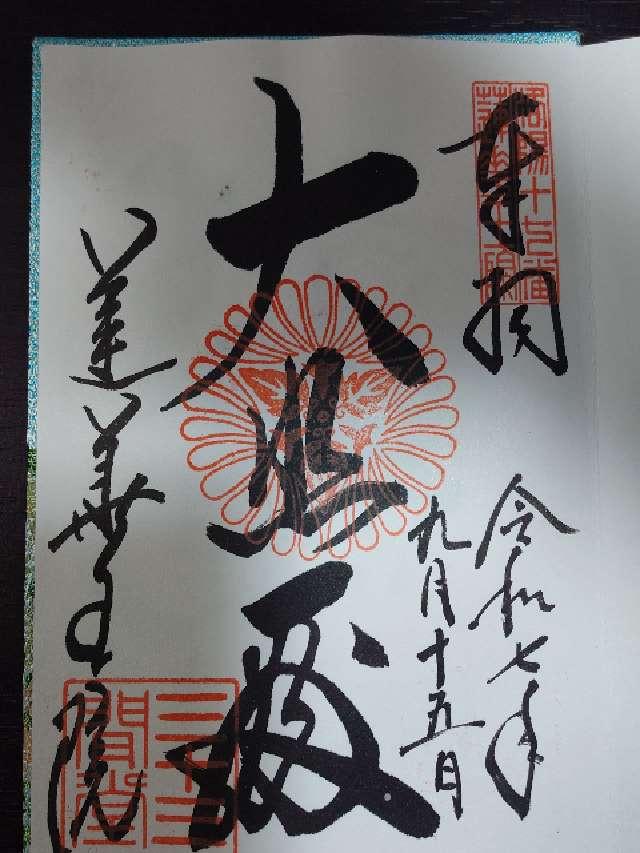 奉拝
洛陽十七番
令和七年
九月十五日
大悲殿
蓮華王院
三十三
間堂